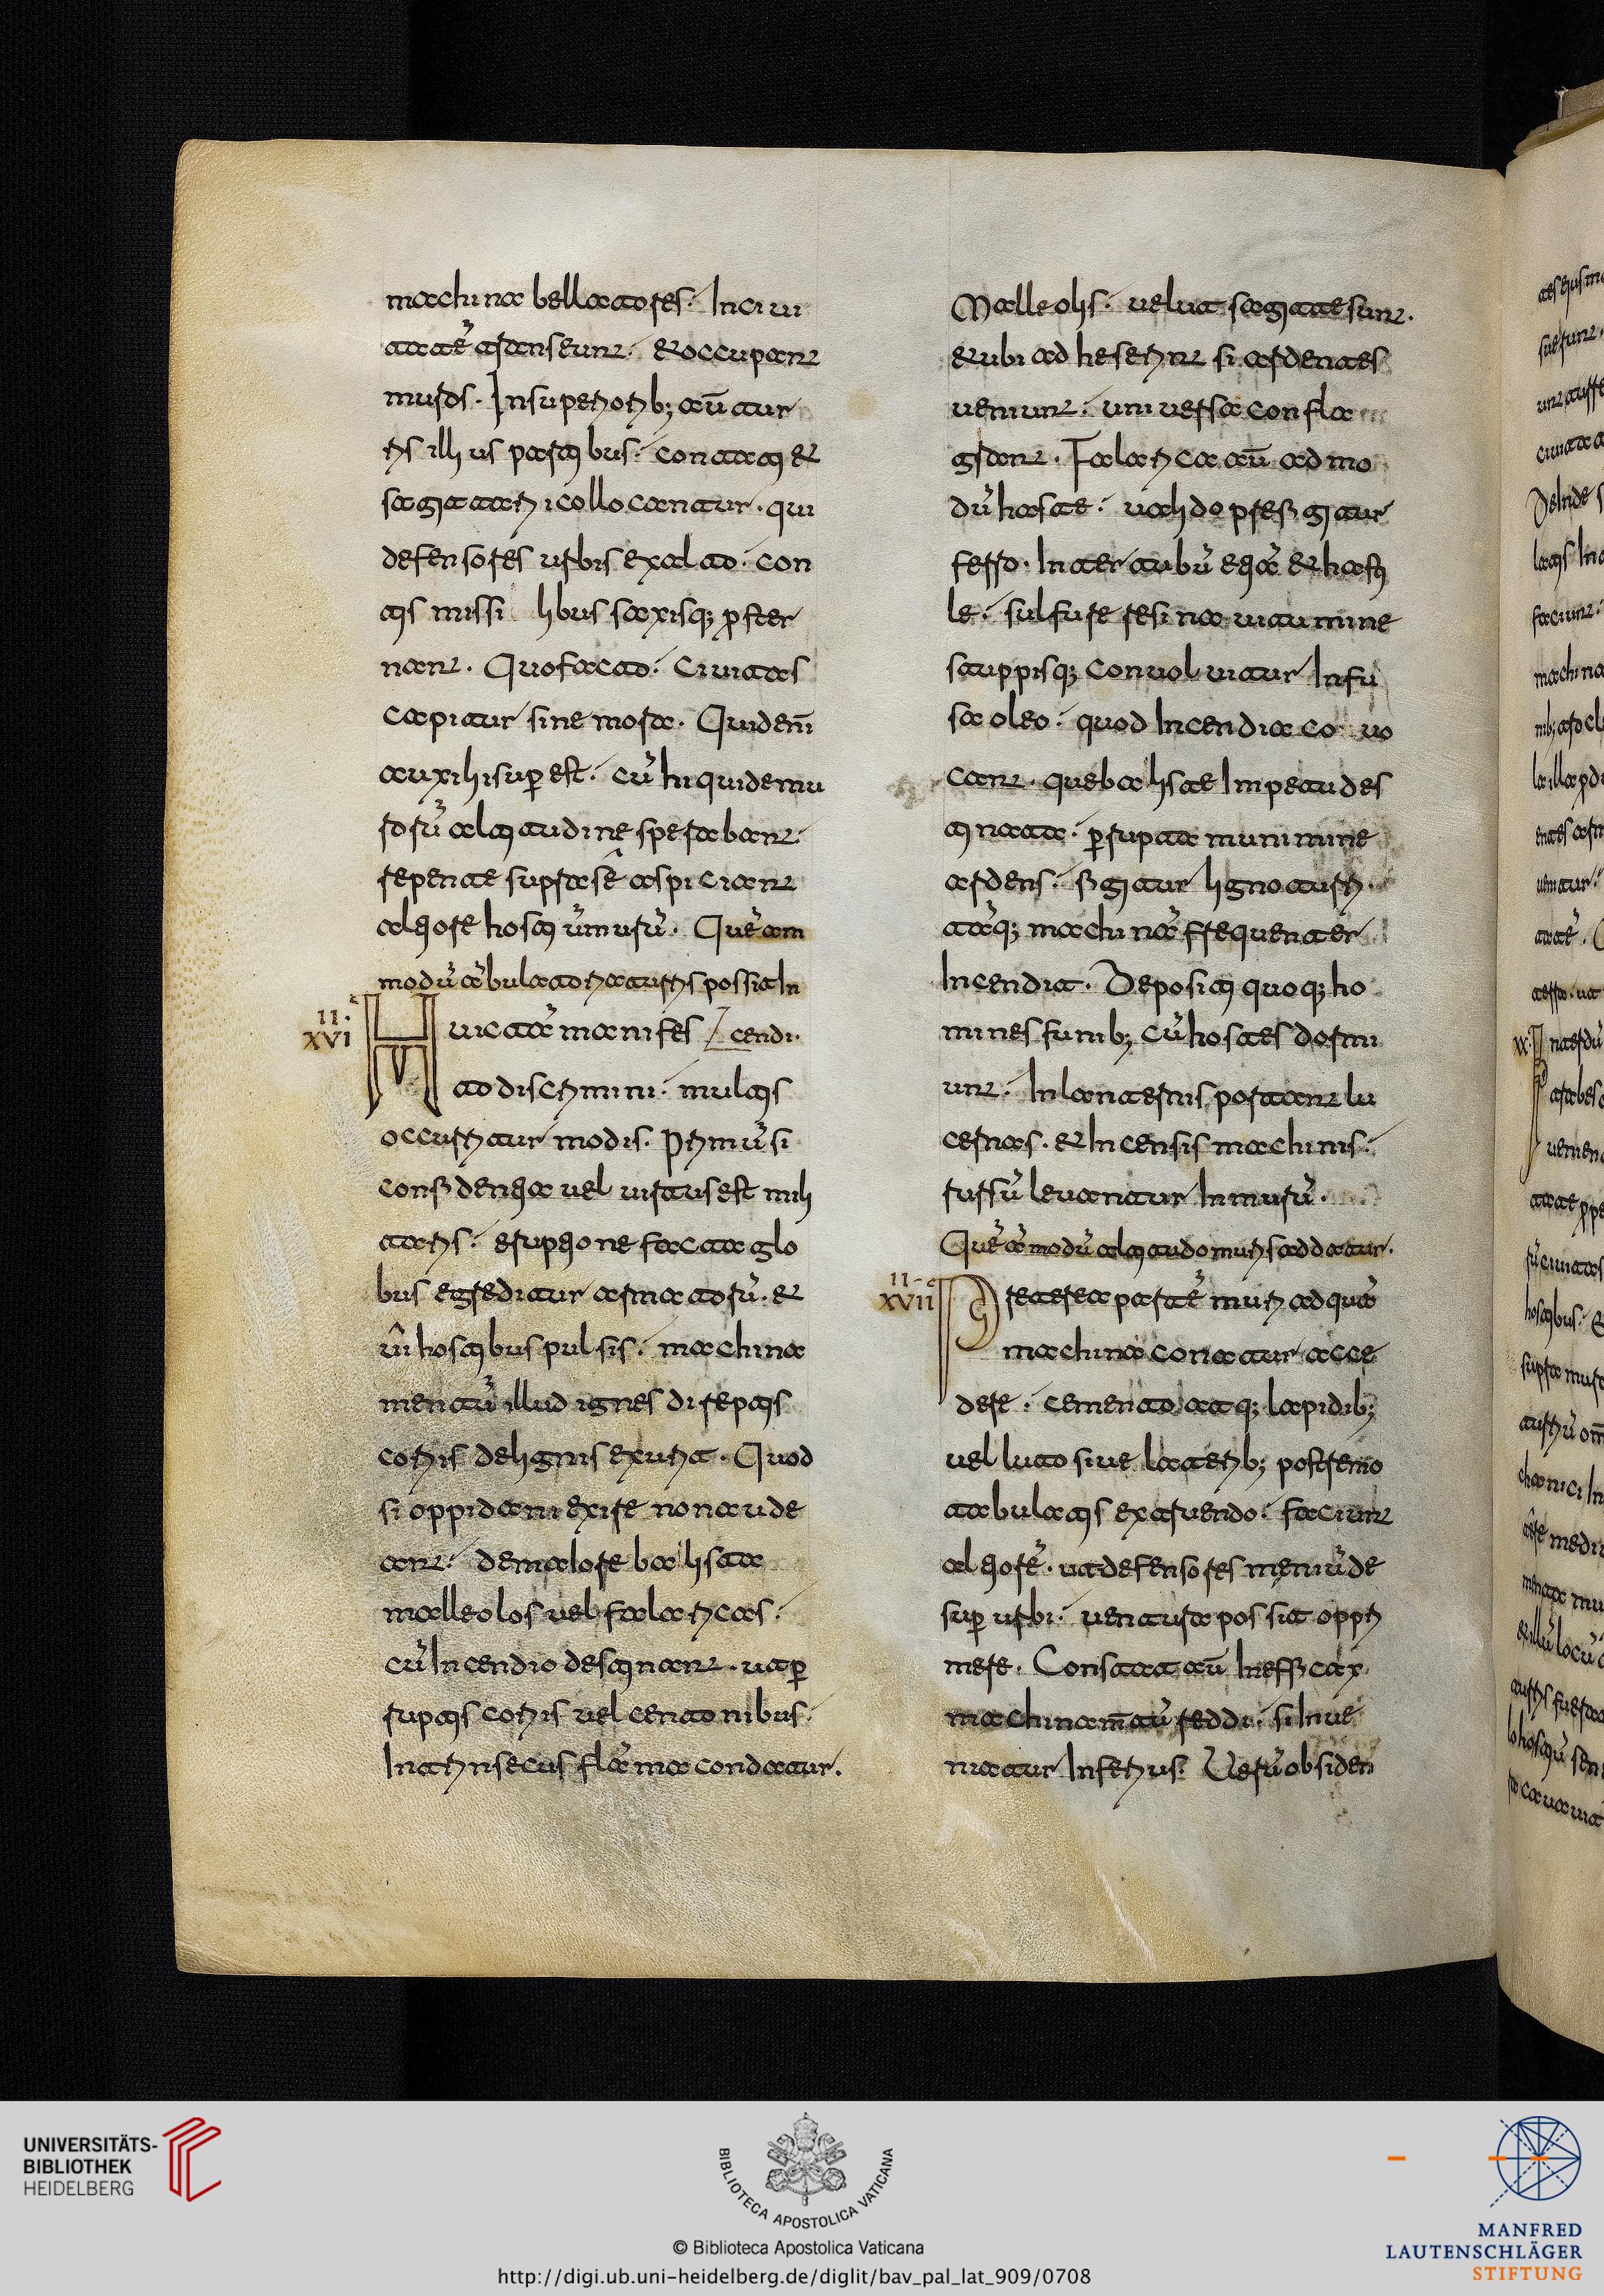 machinae bellatores. In civi
tatē transeunt. et occupant
muros. In superiorib; aū tur
ris illius partibus. contati et
sagittarii collocantur. qui
defensores urbis ex alto. con
tis missi libus saxisq; p̄ster
nant. Quo facto. civitas
capitur sine mora. Quid enī
auxilii sup̱est. cū hi qui de mu
rorū altitudine sperabant.
repente supra sē aspiciant
altiore hostiū murū. Quēam
modū ābulatoria turris possit in
II.
XVI
Huic tā manifes cendi.
to discrimini. multis
occurritur modis. Primū si
confidentia vel virtus est mili
taris. eruptione facta glo
bus egreditur armatorū. et
vi hostibus pulsis. machina
mentū illud ignes direptis
coriis de lignis exurit. Quod
si oppidani exire non aude
ant. de maiore balista
malleolos vel falaricas.
cū incendio destinant. ut p̱
ruptis coriis vel centonibus.
intrinsecus flāma condatur.
Malleolis. velut sagitte sunt.
et ubi ad heserint si ardentes
veniunt. universa confla
grant. Falarica aū ad mo
dū haste. valido prefigitur
ferro. Inter tubū etiā et hasti
le. sulfure resina vitumine
stuppisq; convolvitur infu
sa oleo. quod incendia co vo
cant. que baliste impetu des
tinata. p̱rupta munimine
ardens. figitur ligno turri.
tāq; machinā frequenter
incendit. Depositi quoq; ho
mines funib; cū hostes dormi
unt. in lanternis portant lu
cernas. et incensis machinis.
rursū levantur in murū.
Quēā modū altitudo muris addatur.
II.
XVII
Preterea partē muri ad quā
machina conatur acce
dere. cemento atq; lapidib;
vel luto sive laterib; postremo
tabulatis extruendo. faciunt
altiorē. ut defensores meniū de
sup̱ urbi. ventura possit oppri
mere. Constat aū inefficax
machinam̄tū reddi. si inve
niatur inferius. Verū obsiden
UNIVERSITÄTS-
BIBLIOTHEK
HEIDELBERG
BIBLIOTECA APOSTOLICA VATICANA
© Biblioteca Apostolica Vaticana
http://digi.ub.uni-heidelberg.de/diglit/bav_pal_lat_909/0708
MANFRED
LAUTENSCHLÄGER
STIFTUNG